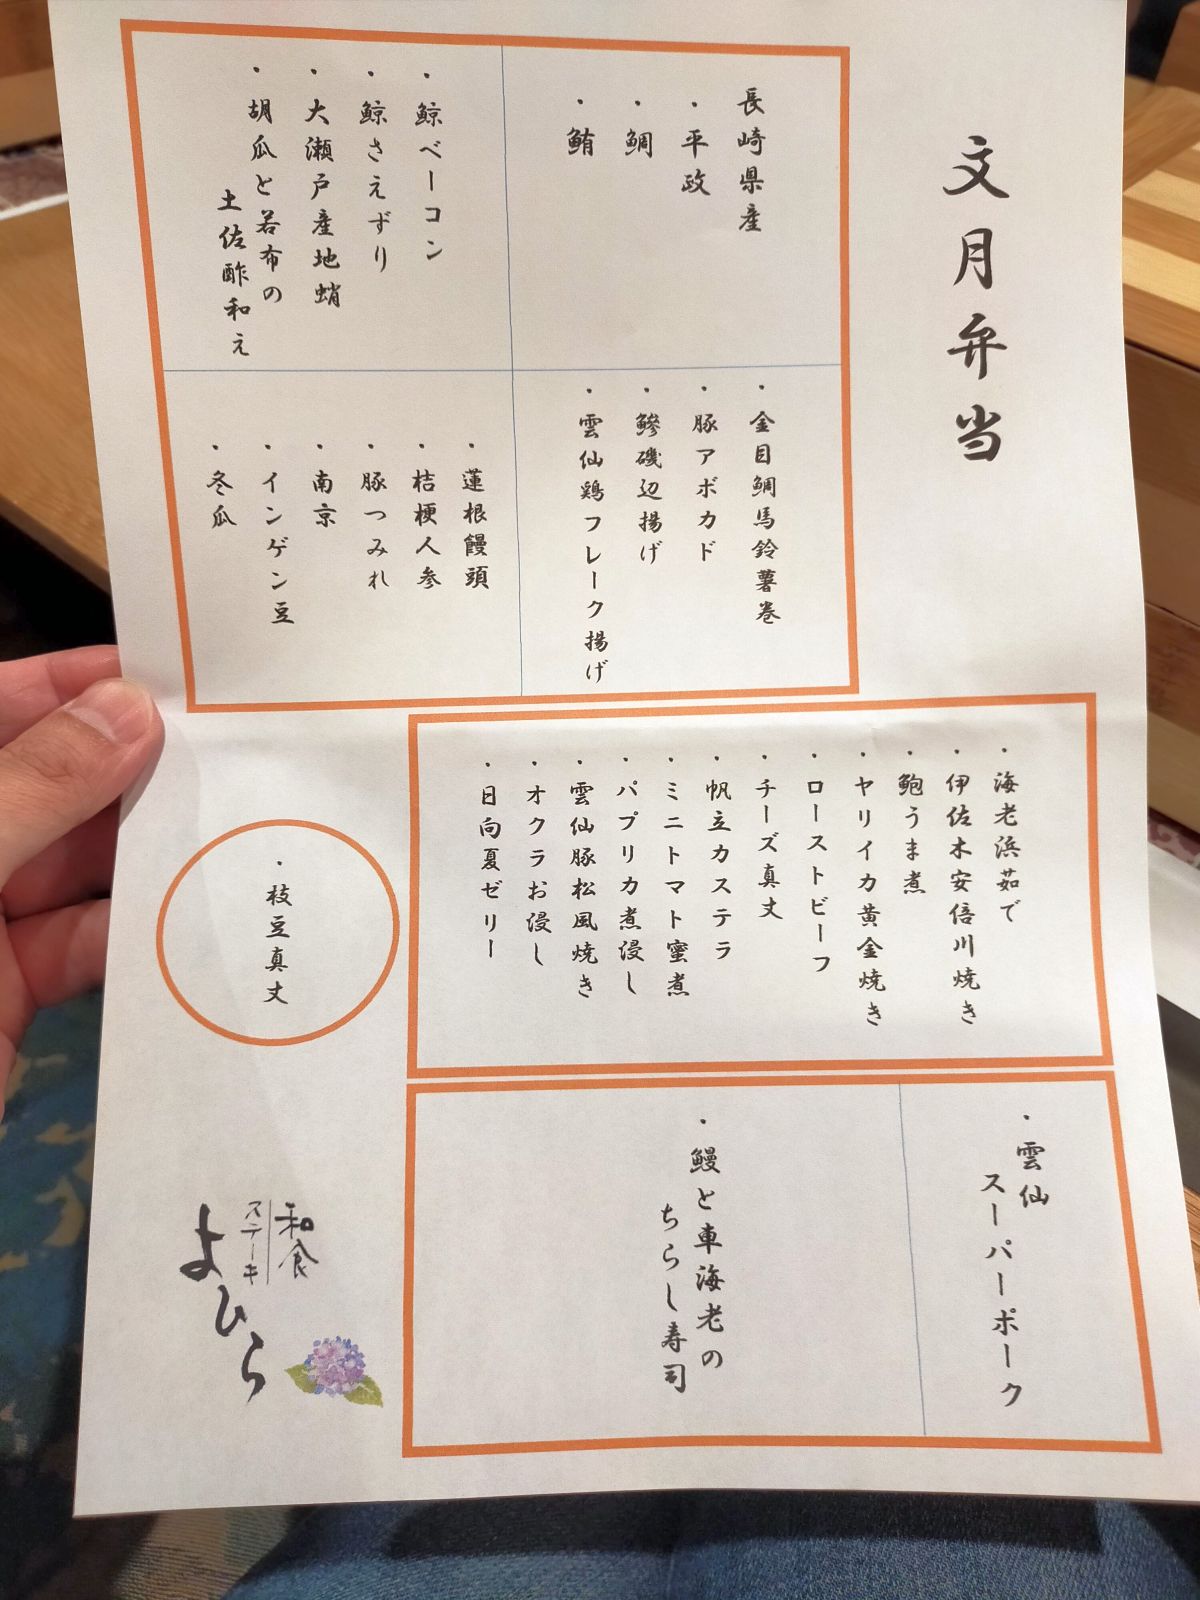 文月弁当
長崎県産
・平政
・鯛
・鮪
・鯨ベーコン
・鯨さえずり
・大瀬戸産地蛸
・胡瓜と若布の
土佐酢和え
・金目鯛馬鈴薯巻
・豚アボカド
・鰺磯辺揚げ
・雲仙鶏フレーク揚げ
・蓮根饅頭
・桔梗人参
・豚つみれ
・南京
・インゲン豆
・冬瓜
・海老浜茹で
・伊佐木安倍川焼き
・鮑うま煮
・ヤリイカ黄金焼き
・ローストビーフ
・チーズ真丈
・帆立カステラ
・ミニトマト蜜煮
・パプリカ煮浸し
・雲仙豚松風焼き
・オクラお浸し
・日向夏ゼリー
・枝豆真丈
・雲仙
スーパーポーク
・鰻と車海老の
ちらし寿司
和食
ステーキ
よひら